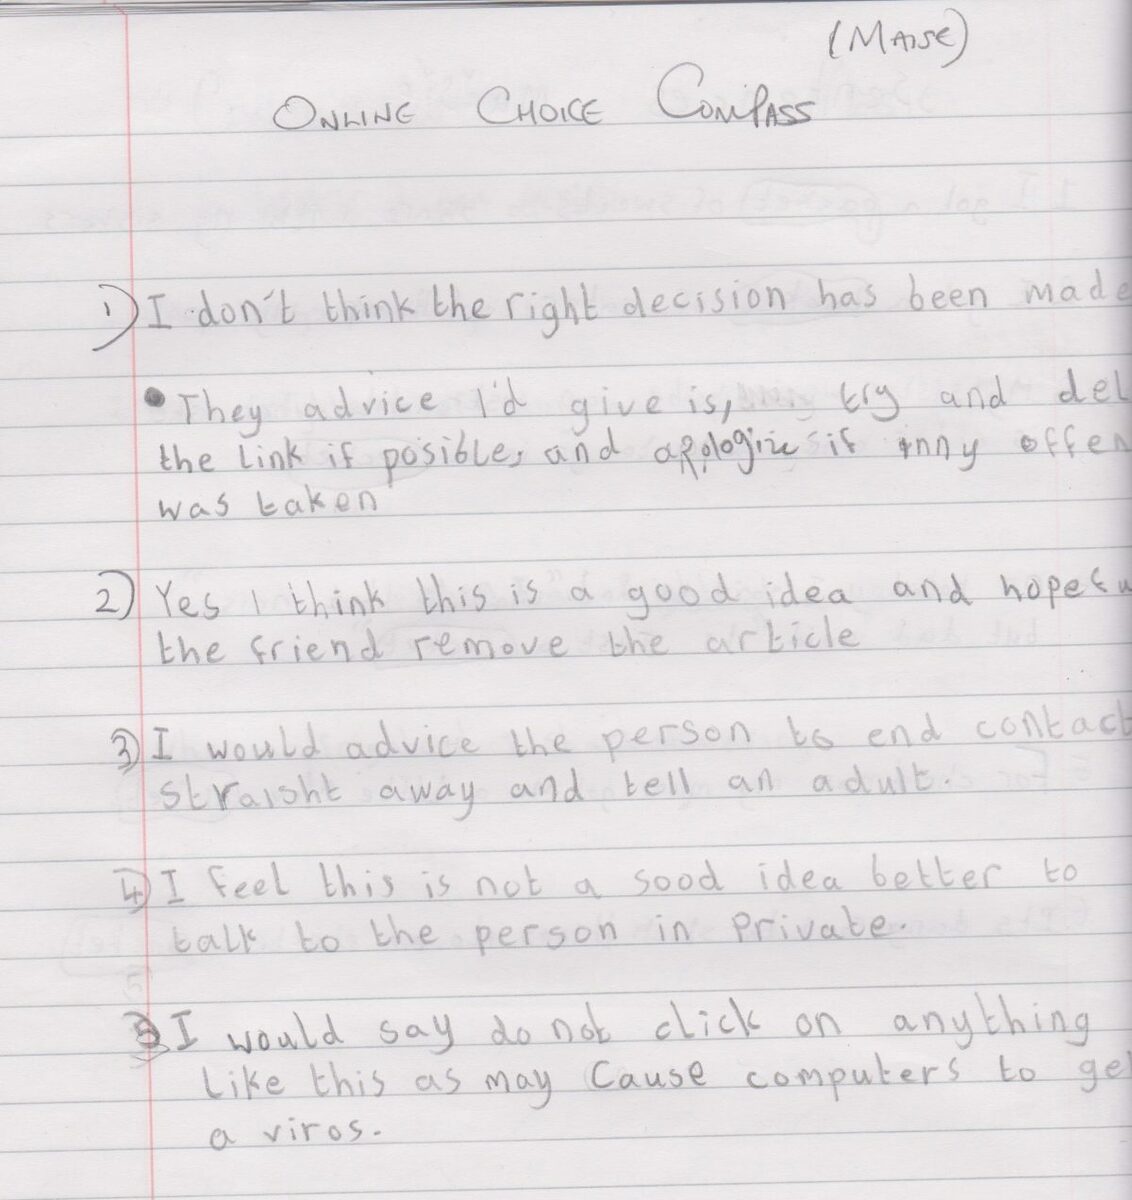 (MAISE)
ONLINE CHOICE COMPASS
1) I don't think the right decision has been made
• They advice I'd give is, try and del
the link if posible, and apologize if inny offen
was taken
2) Yes I think this is a good idea and hopefu
the friend remove the article
3) I would advice the person to end contact
straisht away and tell an adult.
4) I feel this is not a sood idea better to
talk to the person in private.
5 I would say do not click on anything
like this as may cause computers to ge
a viros.